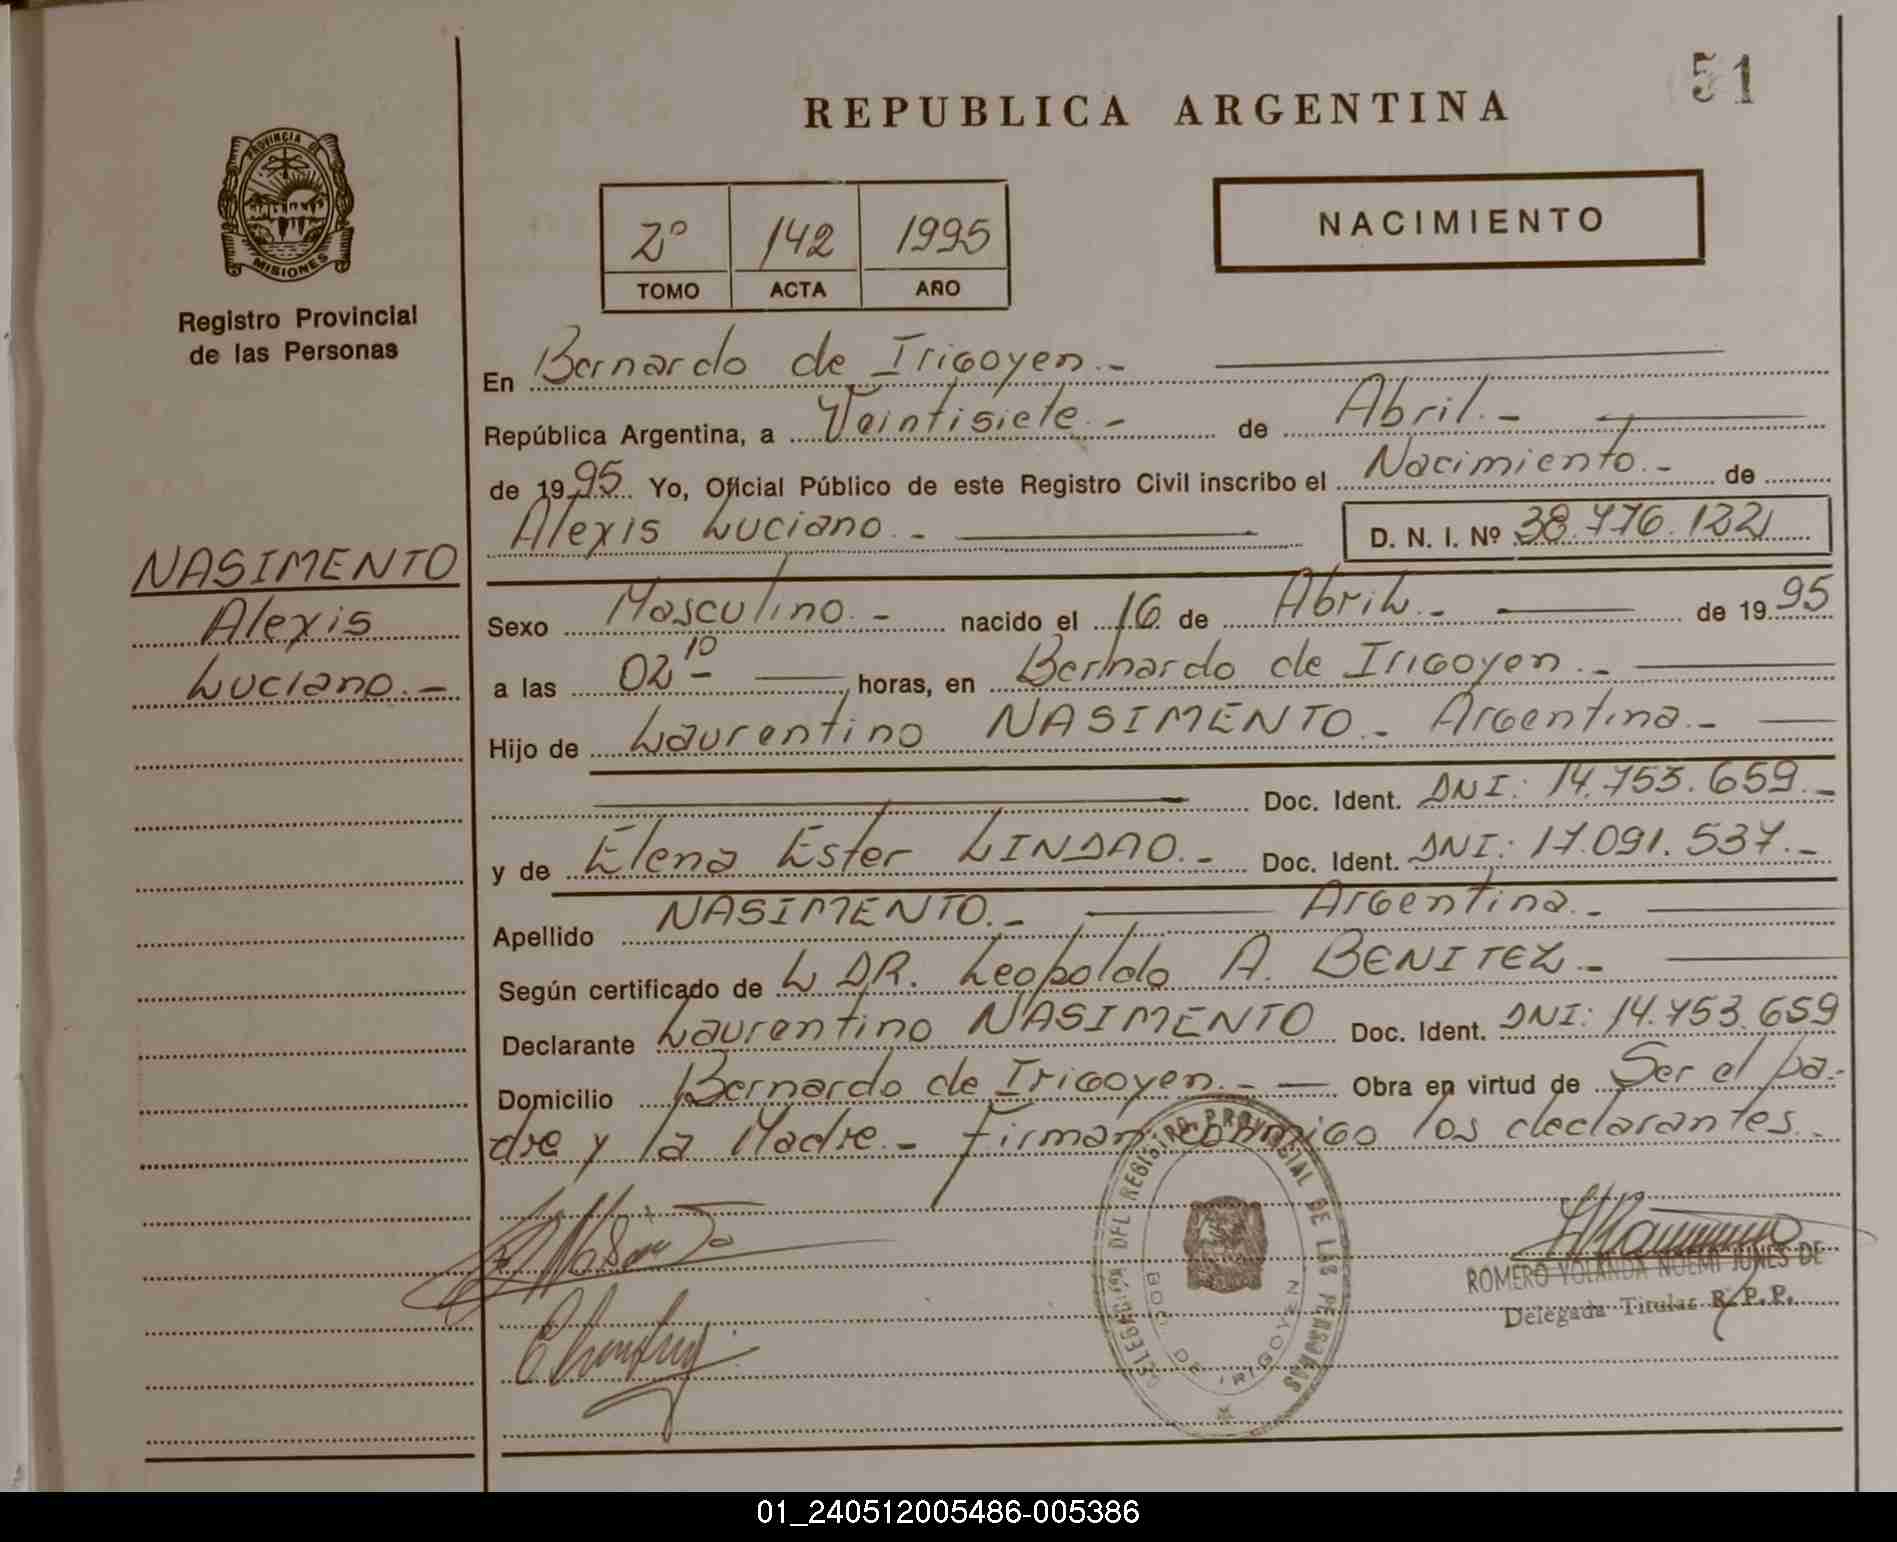 51
REPUBLICA ARGENTINA
PROVINCIA DE
MISIONES
Registro Provincial
de las Personas
2º 142 1995
TOMO ACTA AÑO
NACIMIENTO
En Bernardo de Irigoyen.-
República Argentina, a Veintisiete.- de Abril.-
de 1995. Yo, Oficial Público de este Registro Civil inscribo el Nacimiento.- de
Alexis Luciano.- D. N. I. Nº 38.776.122
NASIMENTO
Alexis
Luciano.-
Sexo Masculino.- nacido el 16 de Abril.- de 1995
a las 02 10 horas, en Bernardo de Irigoyen.-
Hijo de Laurentino NASIMENTO.- Argentina.-
Doc. Ident. DNI: 14.753.659.-
y de Elena Ester LINDAO.- Doc. Ident. DNI: 17.091.537.-
Apellido NASIMENTO.- Argentina.-
Según certificado de L DR. Leopoldo A. BENITEZ.-
Declarante Laurentino NASIMENTO Doc. Ident. DNI: 14.753.659
Domicilio Bernardo de Irigoyen.- Obra en virtud de Ser el pa-
dre y la Madre.- Firman conmigo los declarantes.-
DELEGACIÓN DEL REGISTRO PROVINCIAL DE LAS PERSONAS
BDO. DE IRIGOYEN
ROMERO YOLANDA NOEMI JUNES DE
Delegada Titular R.P.P.
01_240512005486-005386